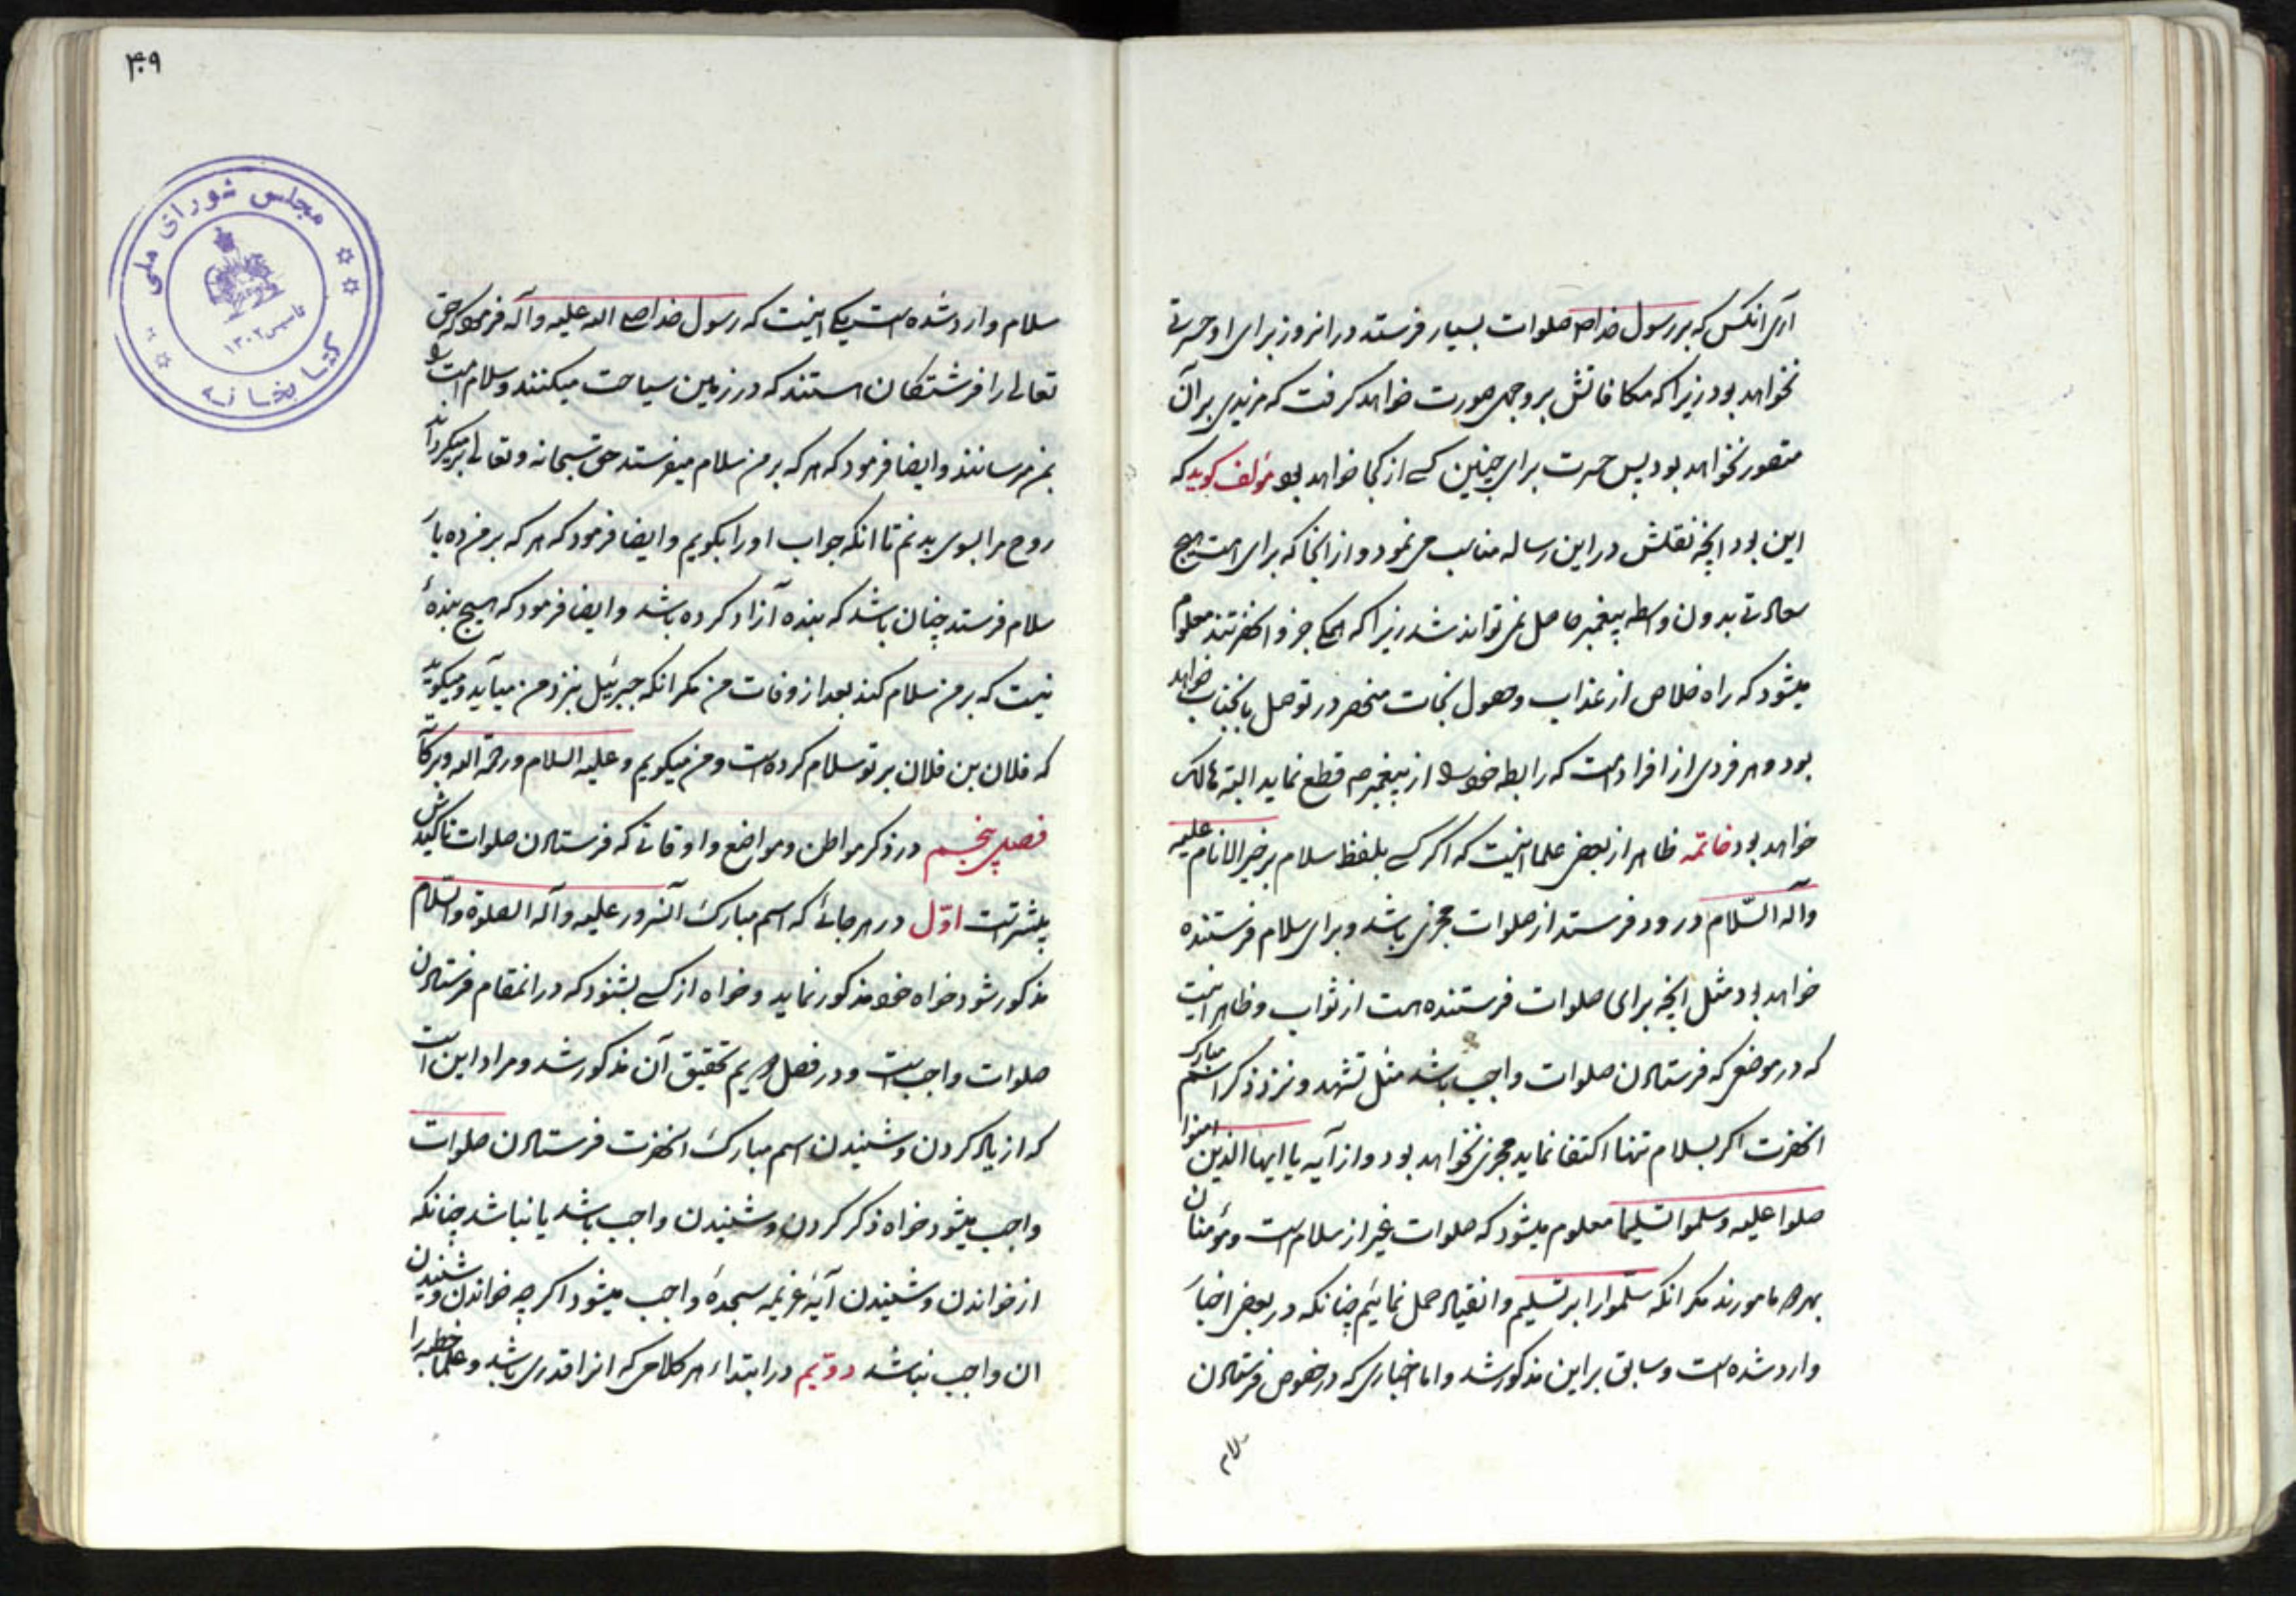 آری انکس که بر رسول خدا ص صلوات بسیار فرستد در انروز برای او حسرتی
نخواهد بود زیرا که مکافاتش بر وجهی صورت خواهد کرفت که مزیدی بر آن
متصور نخواهد بود پس حسرت برای چنین کسی از کجا خواهد بود مؤلف کوید که
این بود انچه نقلش در این رساله مناسب می نمود و از انجا که برای امت هیچ
سعادتی بدون واسطه پیغمبر حاصل نمی تواند شد زیرا که همکی جزو انحضرتند معلوم
میشود که راه خلاص از عذاب و حصول نجات منحصر در توصل بانجناب خواهد
بود و هر فردی از افراد امت که رابطه خود را از پیغمبر ص قطع نماید البته هالک
خواهد بود خاتمه ظاهر از بعض علما اینست که اکر کسی بلفظ سلام بر خیر الانام علیه
واله السّلام درود فرستد از صلوات مجزی باشد و برای سلام فرستنده
خواهد بود مثل انچه برای صلوات فرستنده هست از ثواب و ظاهر اینست
که در موضعی که فرستادن صلوات واجب باشد مثل تشهد و نزد ذکر اسم مبارک
انحضرت اکر بسلام تنها اکتفا نماید مجزی نخواهد بود و از آیه یا ایها الذین امنوا
صلوا علیه وسلموا تسلیما معلوم میشود که صلوات غیر از سلام است و مؤمنان
بهر دو مامورند مکر انکه سلّموا را بر تسلیم و انقیاد حمل نمائیم چنانکه در بعض اخبار
وارد شده است و سابق بر این مذکور شد و اما اخباری که در خصوص فرستادن
سلام
۴۰۹
مجلس شورای ملی
کتابخانه
تاسیس ۱۳۰۲
سلام وارد شده است یکی اینست که رسول خدا صلی الله علیه و آله فرمود که حق
تعالی را فرشتکان هستند که در زمین سیاحت میکنند و سلام امت را
بمن میرسانند و ایضا فرمود که هر که بر من سلام میفرستد حق سبحانه و تعالی بر میکرداند
روح مرا بسوی بدنم تا انکه جواب او را بکویم و ایضا فرمود که هر که بر من ده بار
سلام فرستد چنان باشد که بنده آزاد کرده باشد و ایضا فرمود که هیچ بندهٔ
نیست که بر من سلام کند بعد از وفات من مکر انکه جبرئیل بنزد من میآید و میکوید
که فلان بن فلان بر تو سلام کرده است و من میکویم و علیه السلام و رحمة الله و برکاته
فصل پنجم در ذکر مواطن و مواضع و اوقاتی که فرستادن صلوات تاکیدش
بیشتر است اوّل در هر جائی که اسم مبارک آنسرور علیه و آله الصلوة والسّلام
مذکور شود خواه خود مذکور نماید و خواه از کسی بشنود که در انمقام فرستادن
صلوات واجب است و در فصل دویم تحقیق آن مذکور شد و مراد این است
که از یاد کردن و شنیدن اسم مبارک انحضرت فرستادن صلوات
واجب میشود خواه ذکر کردن و شنیدن واجب باشد یا نباشد چنانکه
از خواندن و شنیدن آیهٔ عزیمه سجدهٔ واجب میشود اکر چه خواندن و شنیدن
ان واجب نباشد دوّیم در ابتداء هر کلامی که انرا قدری باشد و علما خطبه را